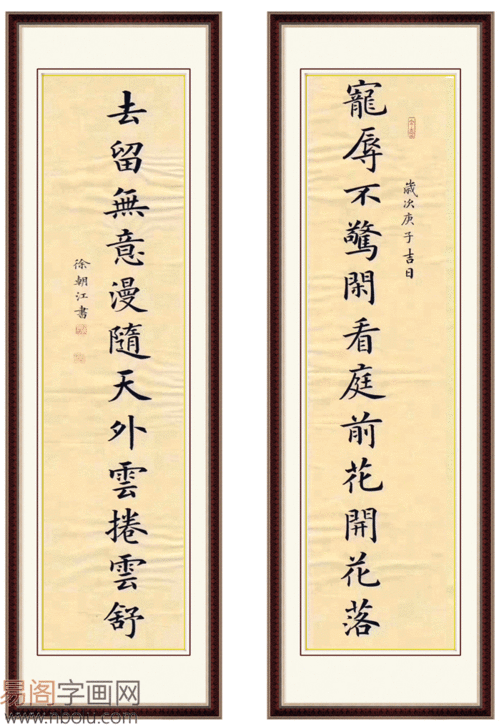 寵辱不驚閑看庭前花開花落
歲次庚子吉日
去留無意漫隨天外雲捲雲舒
徐朝江書
易阁字画网